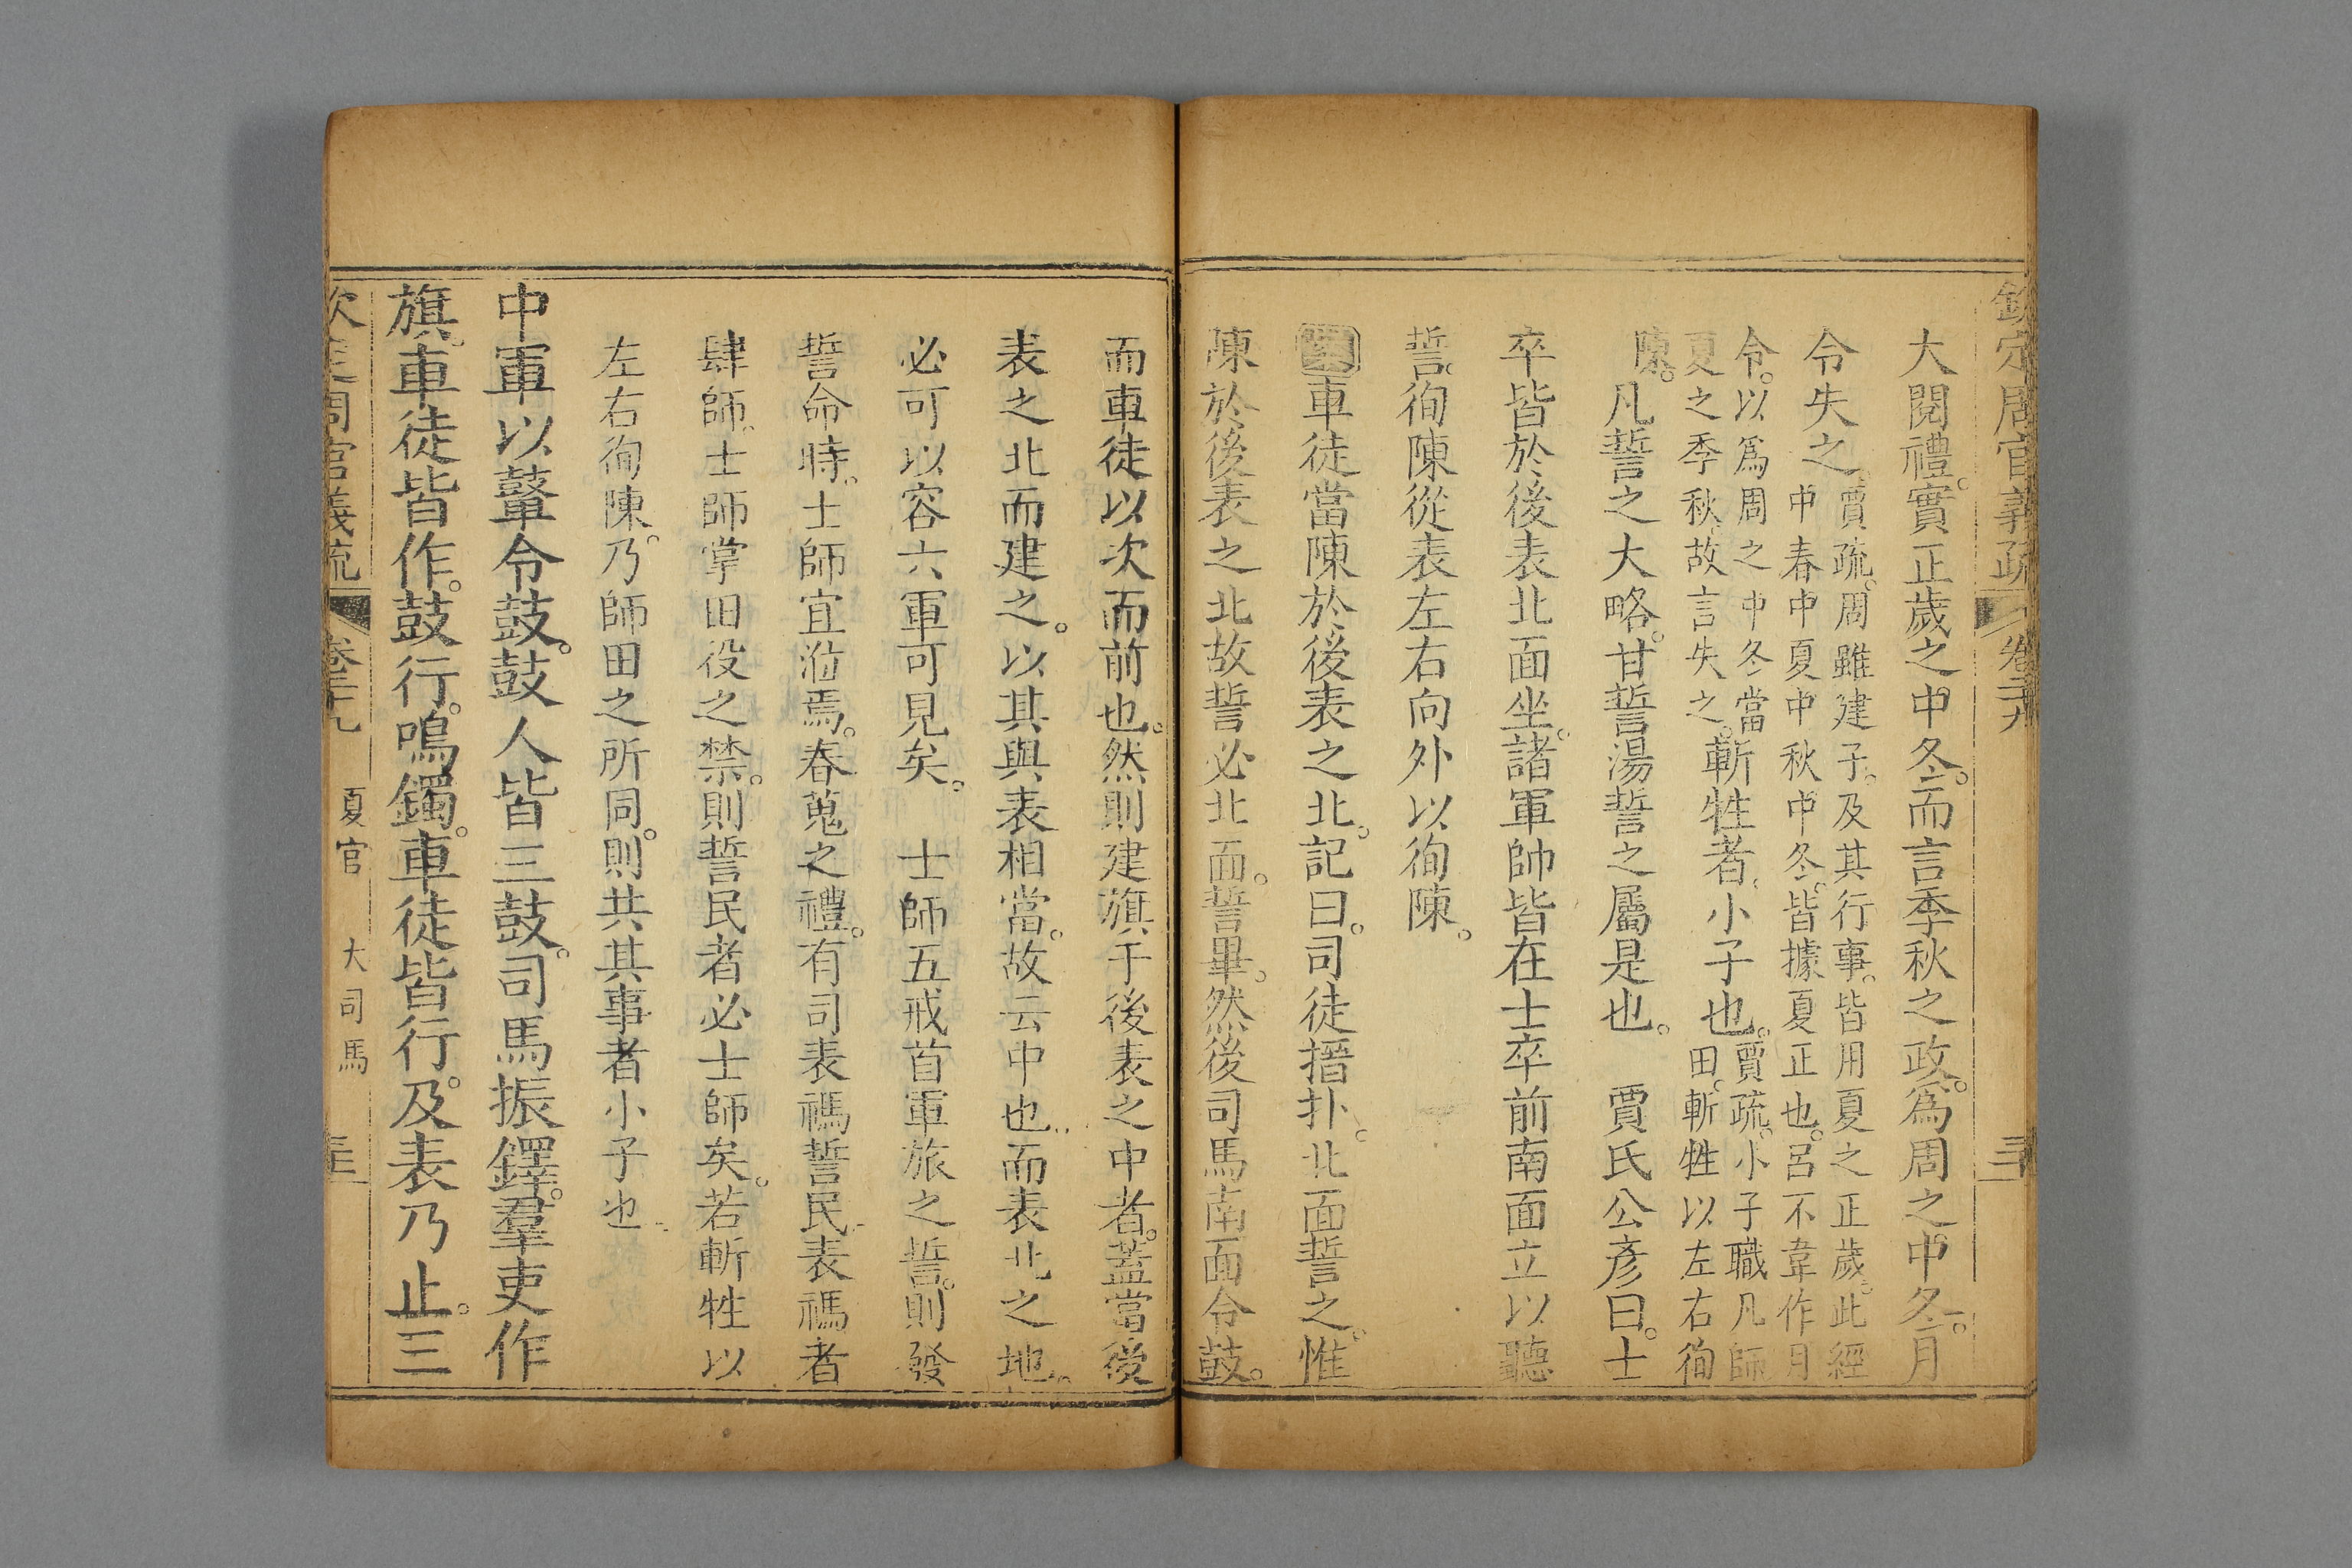 欽定周官義疏 卷二十九 三十
大閱禮。實正歲之中冬。而言季秋之政。爲周之中冬。月
令失之。賈疏。周雖建子。及其行事。皆用夏之正歲。此經
中春中夏中秋中冬。皆據夏正也。呂不韋作月
令。以爲周之中冬。當
夏之季秋。故言失之。斬牲者。小子也。賈疏。小子職。凡師
田。斬牲以左右徇
陳。凡誓之大略。甘誓湯誓之屬是也。 賈氏公彦曰。士
卒皆於後表北面坐。諸軍帥皆在士卒前南面立以聽
誓。徇陳從表左右向外以徇陳。
車徒當陳於後表之北。記曰。司徒搢扑。北面誓之。惟
陳於後表之北故誓必北面。誓畢。然後司馬南面令鼓。
而車徒以次而前也。然則建旗于後表之中者。蓋當後
表之北而建之。以其與表相當。故云中也。而表北之地。
必可以容六軍可見矣。 士師五戒首軍旅之誓。則發
誓命時。士師宜涖焉。春蒐之禮。有司表禡誓民。表禡者
肆師。士師掌田役之禁。則誓民者必士師矣。若斬牲以
左右徇陳。乃師田之所同。則共其事者小子也。
中軍以鼙令鼓。鼓人皆三鼓。司馬振鐸。羣吏作
旗。車徒皆作。鼓行。鳴鐲。車徒皆行。及表乃止。三
欽定周官義疏 卷二十九 夏官 大司馬 三十一